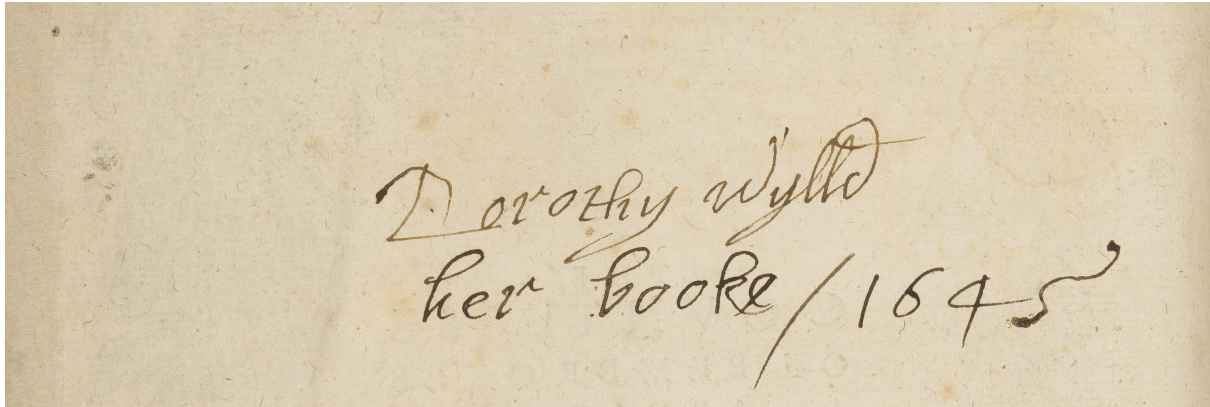 Dorothy Wylld
her booke / 1645